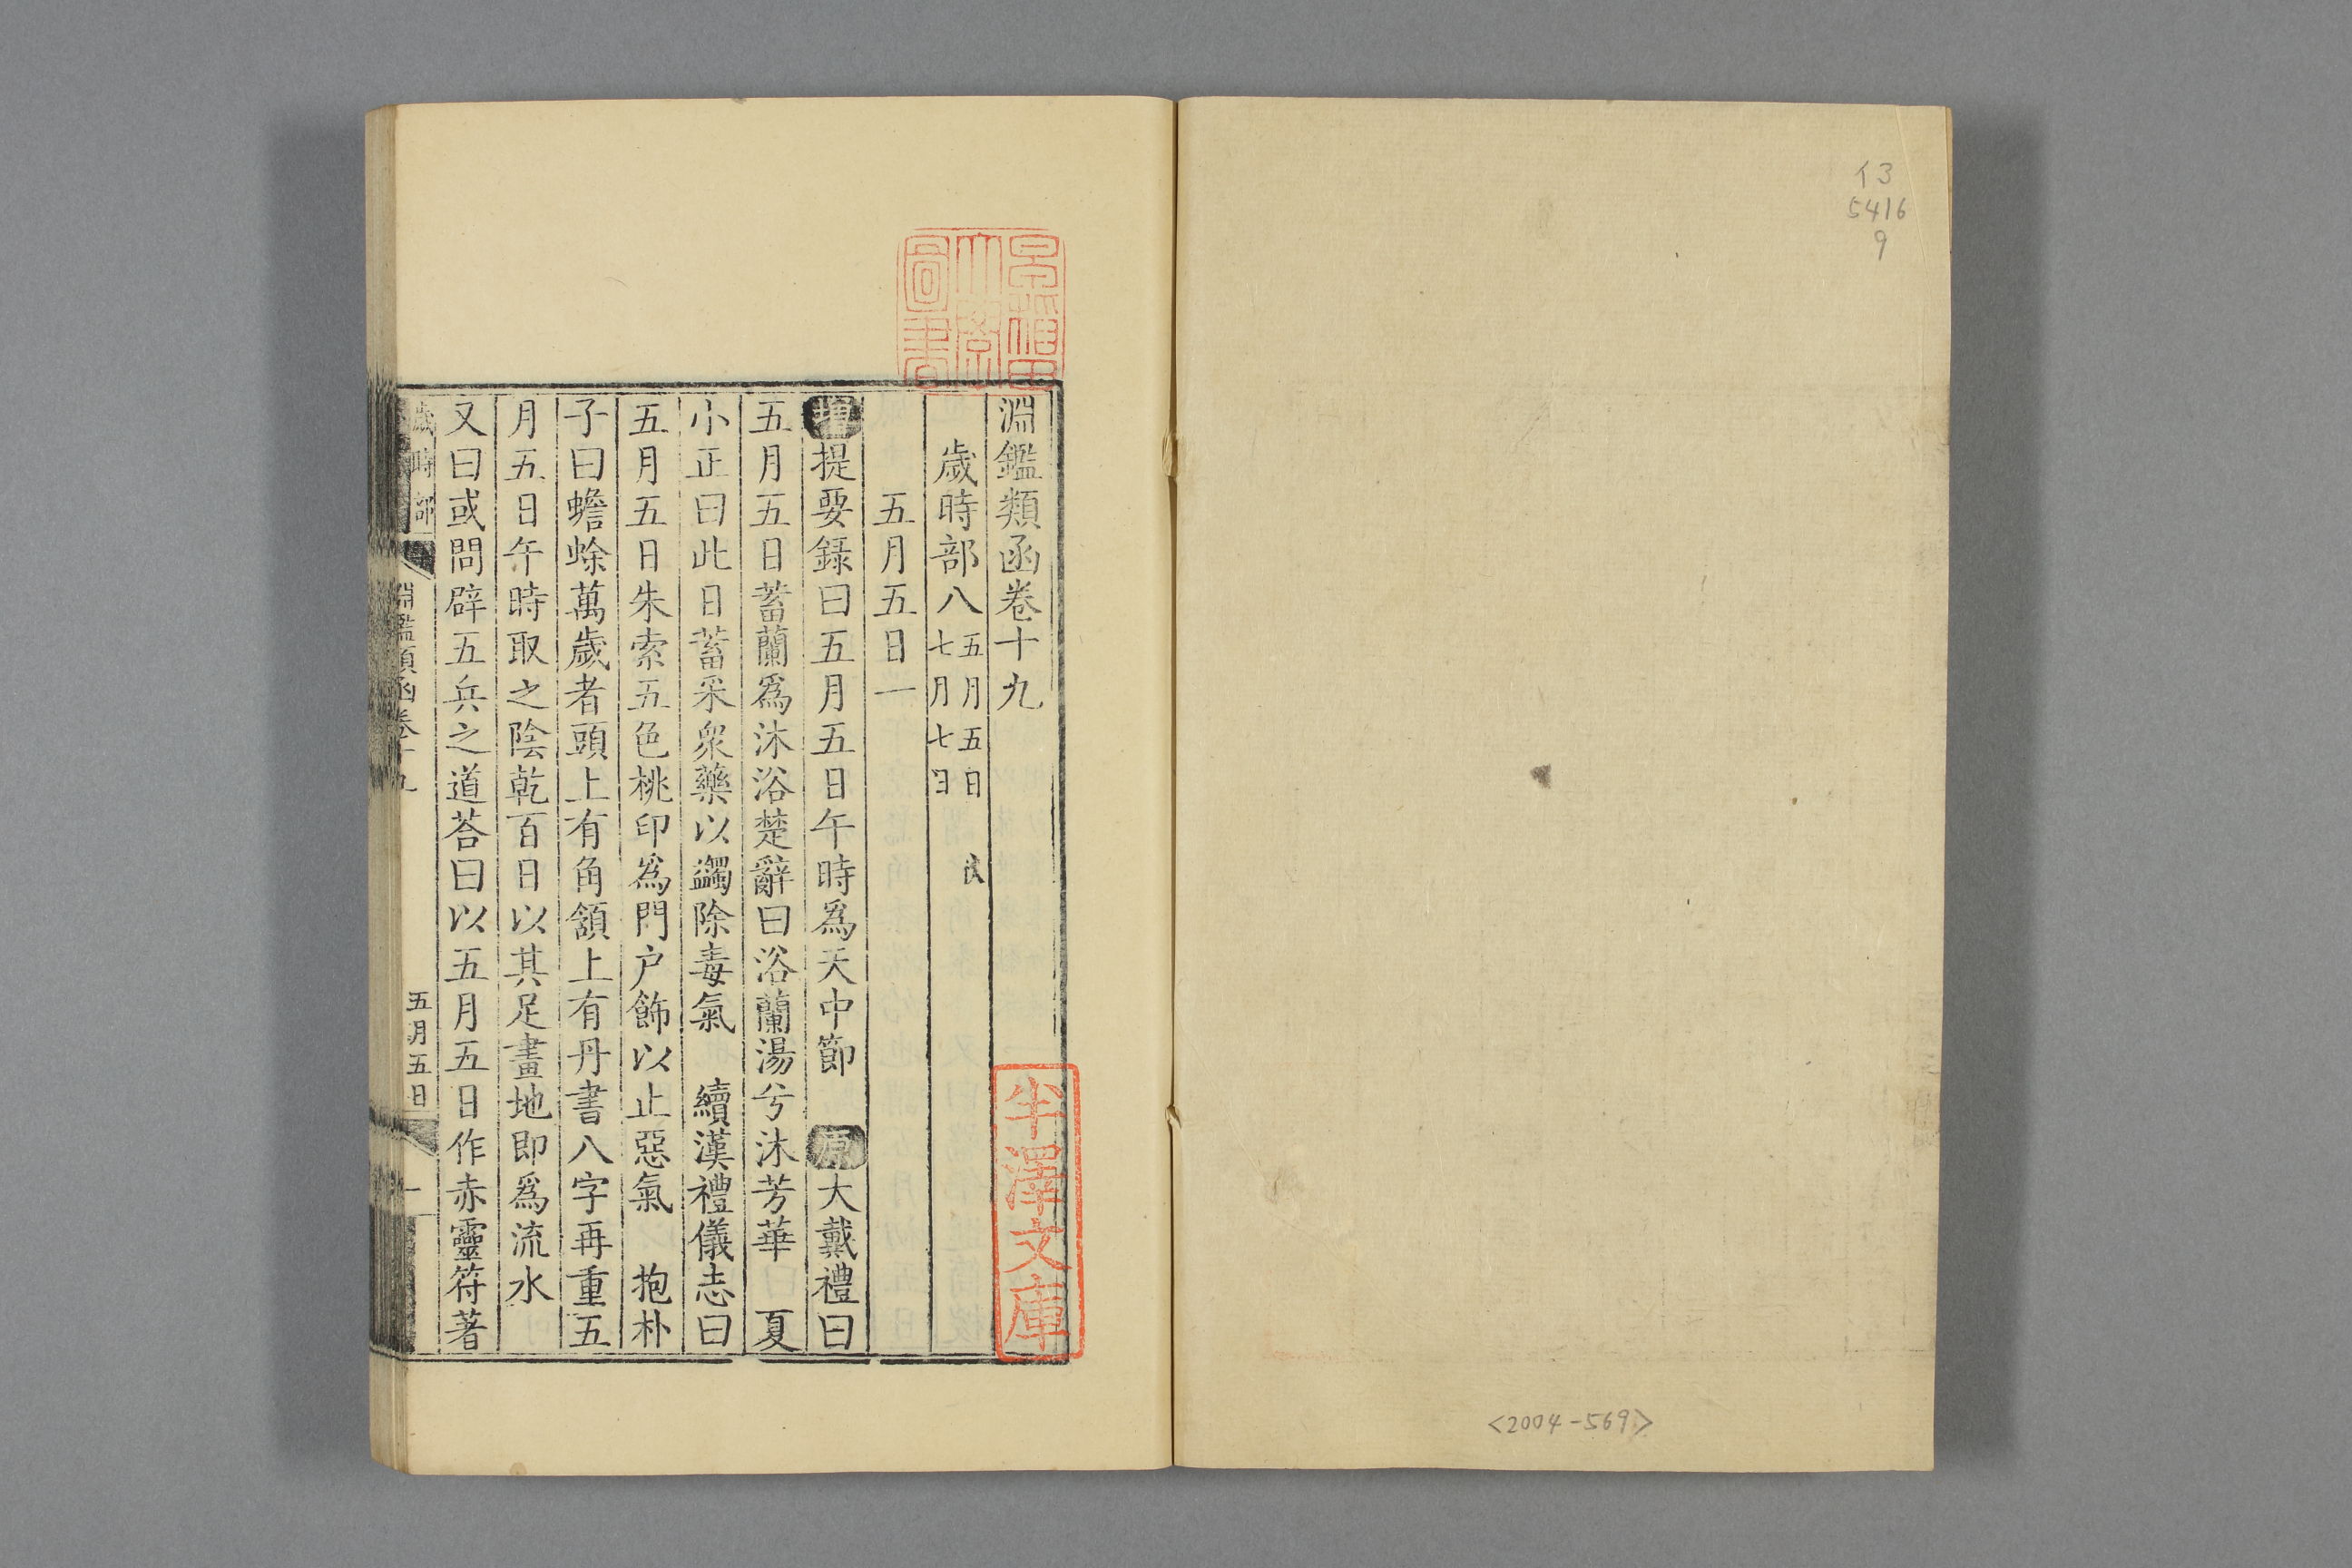 イ3
5416
9
<2004-569>
早稲田
大學
圖書
淵鑑類函卷十九
歲時部八
五月五日
七月七日
五月五日一
增提要錄曰五月五日午時爲天中節 原大戴禮曰
五月五日蓄蘭爲沐浴楚辭曰浴蘭湯兮沐芳華 夏
小正曰此日蓄采衆藥以蠲除毒氣 續漢禮儀志曰
五月五日朱索五色桃印爲門户飾以止惡氣 抱朴
子曰蟾蜍萬歲者頭上有角頷上有丹書八字再重五
月五日午時取之陰乾百日以其足畫地即爲流水
又曰或問辟五兵之道荅曰以五月五日作赤靈符著
歲時部
淵鑑類函卷十九
五月五日
一
半澤文庫